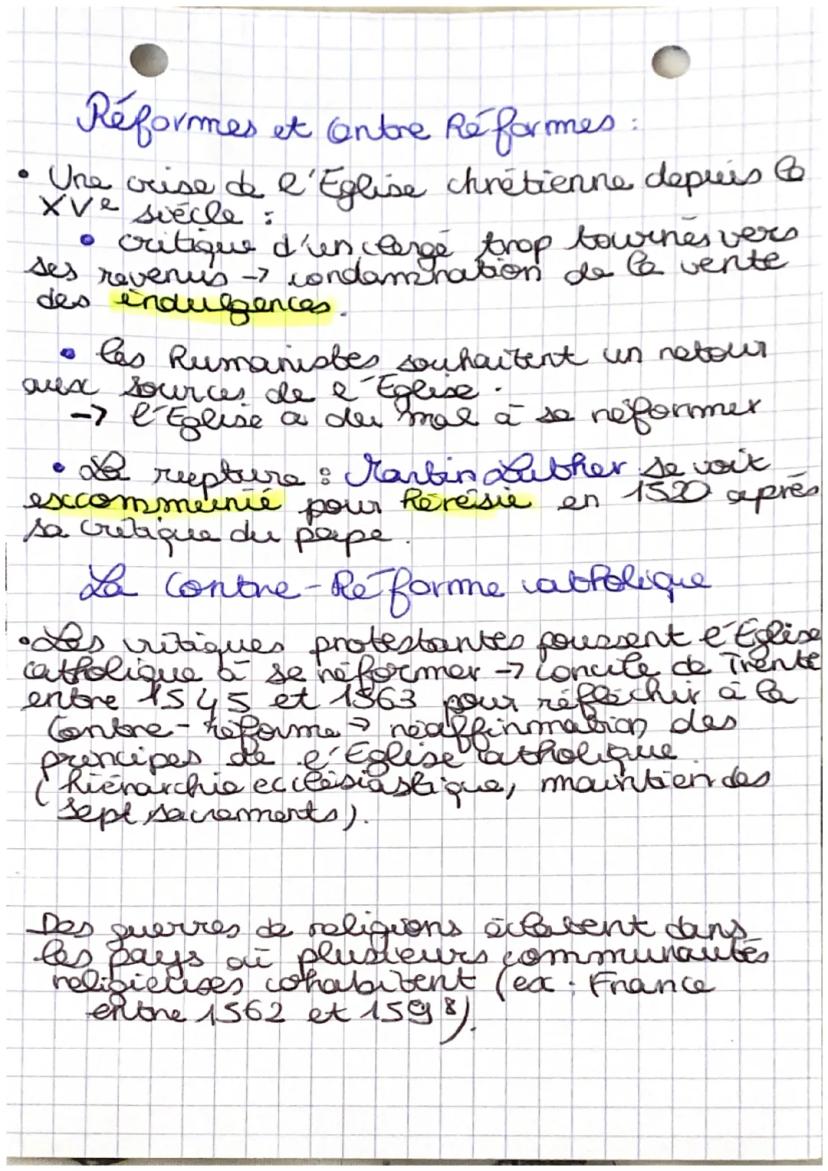 Réformes et Contre Réformes :
• Une crise de l'Eglise chrétienne depuis le
XVe siècle :
• critique d'un clergé trop tournés vers
ses revenus → condamnation de la vente
des indulgences.
• les Humanistes souhaitent un retour
aux sources de l'Eglise.
→ l'Eglise a du mal à se réformer
• La rupture : Martin Luther se voit
excommunié pour hérésie en 1520 après
sa critique du pape.
La Contre-Réforme catholique
• Les critiques protestantes poussent l'Eglise
catholique à se réformer → concile de Trente
entre 1545 et 1563 pour réfléchir à la
Contre-réforme → réaffirmation des
principes de l'Eglise catholique
(hiérarchie ecclésiastique, maintien des
sept sacrements).
Des guerres de religions éclatent dans
les pays où plusieurs communautés
religieuses cohabitent (ex : France
entre 1562 et 1598).